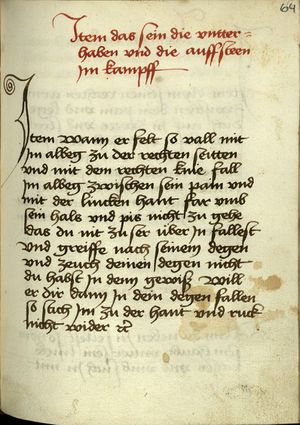 64
Item das sein die vntter=
haben vnd die auffsteen
Im kampff
Item wann er felt so vall mit
Im albeg zu der rechten seitten
vnd mit dem rechten knie fall
Im albeg zwischen sein pain vnd
mit der lincken hant far vmb
sein hals vnd pis nicht zu gehe
das du nit zu ser über in fallest
vnd greiffe nach seinem degen
vnd zeuch deinen degen nicht
du habst in denn gewiß will
er dir dann in dein degen fallen
so stich Im zu der hant vnd ruck
nicht wider &c